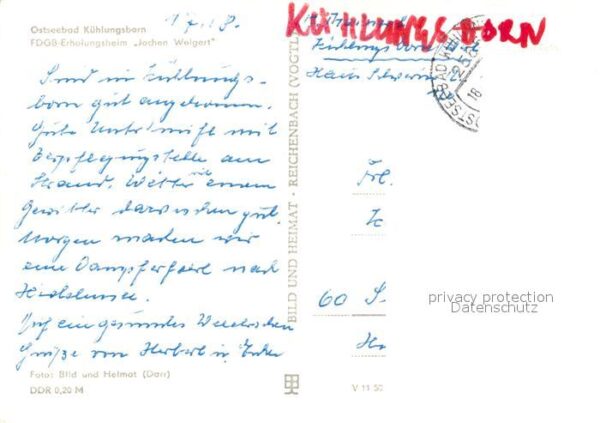 Ostseebad Kühlungsborn
FDGB-Erholungsheim „Jochen Weigert"
17. 8.
Sind in Kühlungs-
born gut angekommen.
Gute Unterkunft mit
Verpflegungsstelle am
Strand. Wetter einem
Gewitter dazwischen gut
Morgen machen wir
eine Dampferfahrt nach
Hiddensee.
Auf ein gesundes Wiedersehen
Grüße von Herbert u.
Foto: Bild und Heimat (Darr)
DDR 0,20 M
BILD UND HEIMAT · REICHENBACH (VOGTL
KÜHLUNGSBORN
Kühlungsborn
Haus Schwerin
OSTSEEBAD
18
Frl.
60 S
privacy protection
Datenschutz
Ha
V 11 52